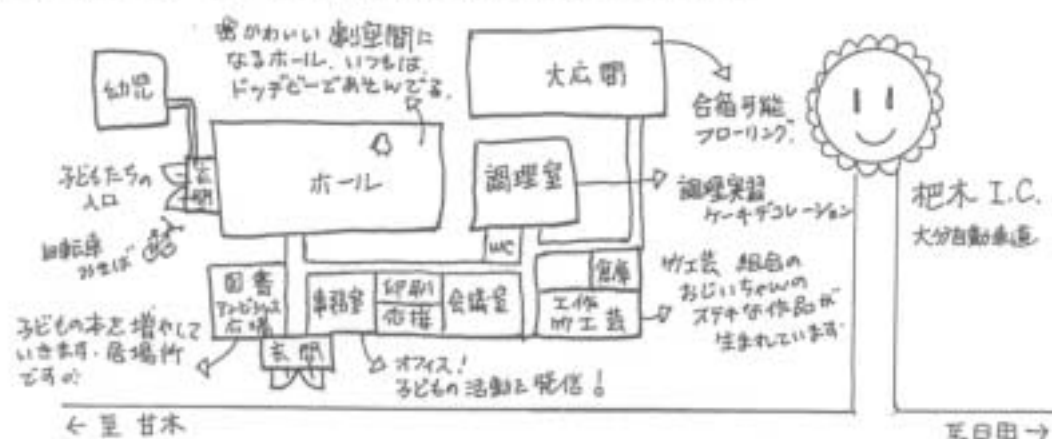 かわいい劇空間に
なるホール。いつもは、
ドッヂビーであそんでる。
幼児
大広間
合宿可能
フローリング。
子どもたちの
入口
玄関
ホール
調理室
調理実習
ケーキデコレーション
杷木 I.C.
大分自動車道
自転車
おきば
WC
図書
広場
事務室
印刷
応接
会議室
倉庫
工作
竹工芸
竹工芸 組合の
おじいちゃんの
ステキな作品が
生まれています
子どもの本を増やして
いきます。居場所
です
玄関
オフィス!
子どもの活動を発信!
← 至 甘木
至日田 →